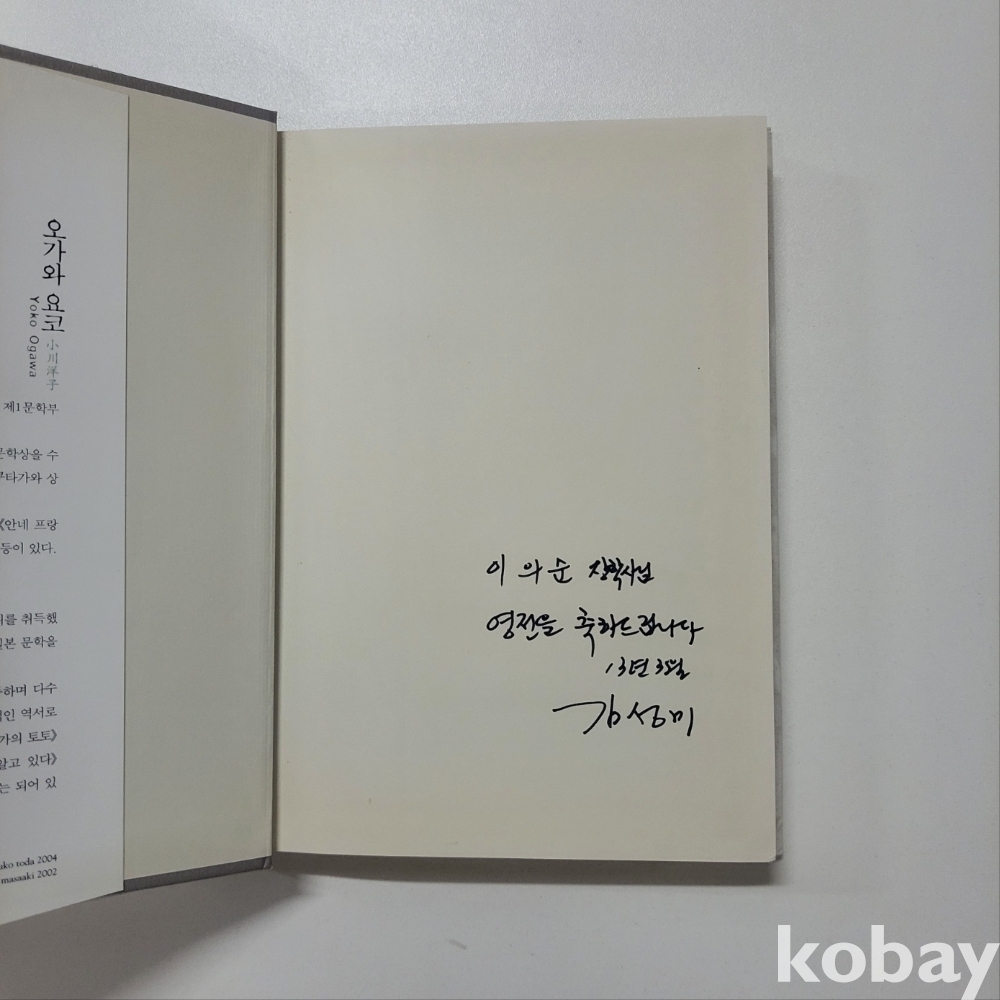 오가와 요코
Yoko Ogawa
小川洋子
제1문학부
문학상을 수
쿠타가와 상
《안네 프랑
등이 있다.
위를 취득했
일본 문학을
하며 다수
적인 역서로
가의 토토》
알고 있다》
는 되어 있
ako toda 2004
masaaki 2002
이 의순 장학사님
영전을 축하드립니다
13년 3월
김성미
kobay